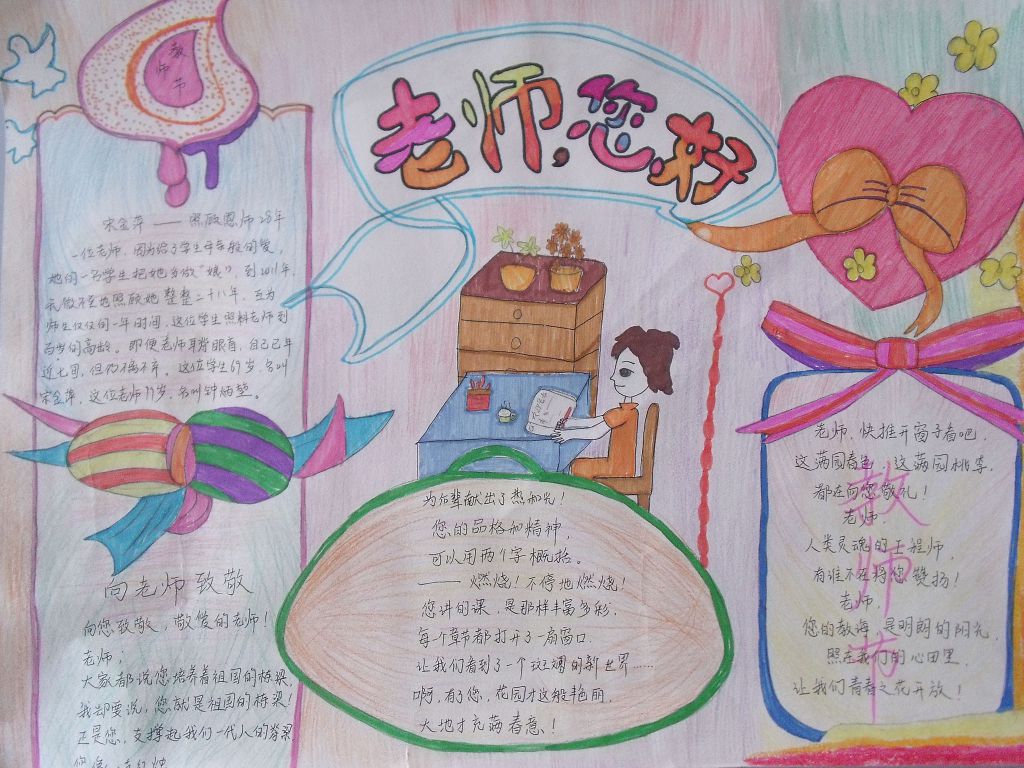 教师节
老师,您好
宋金萍——照顾恩师28年
一位老师,因为给了学生母亲般的爱,
她的一名学生把她当做“娘”,到2011年,
无微不至地照顾她整整二十八年,互为
师生仅仅的一年时间,这位学生照料老师到
百岁的高龄。即便老师耳背眼盲,自己已年
近七旬,但仍不离不弃,这位学生67岁,名叫
宋金萍,这位老师
岁,名叫钟
向老师致敬
向您致敬,敬爱的老师!
老师;
大家都说您培养着祖国的栋梁,
我却要说,您就是祖国的栋梁!
正是您,支撑起我们一代人的脊梁
为后辈献出了热和光!
您的品格和精神,
可以用两个字概括。
——燃烧!不停地燃烧!
您讲的课,是那样丰富多彩,
每个章节都打开了一扇窗口,
让我们看到了一个斑斓的新世界……
啊,有了您,花园才这般艳丽,
大地才充满春意!
老师,快推开窗子看吧,
这满园春色,这满园桃李,
都在向您敬礼!
老师,
人类灵魂的工程师,
有谁不在将您赞扬!
老师,
您的教诲,是明朗的阳光,
照在我们的心田里,
让我们青春之花开放!
教师节